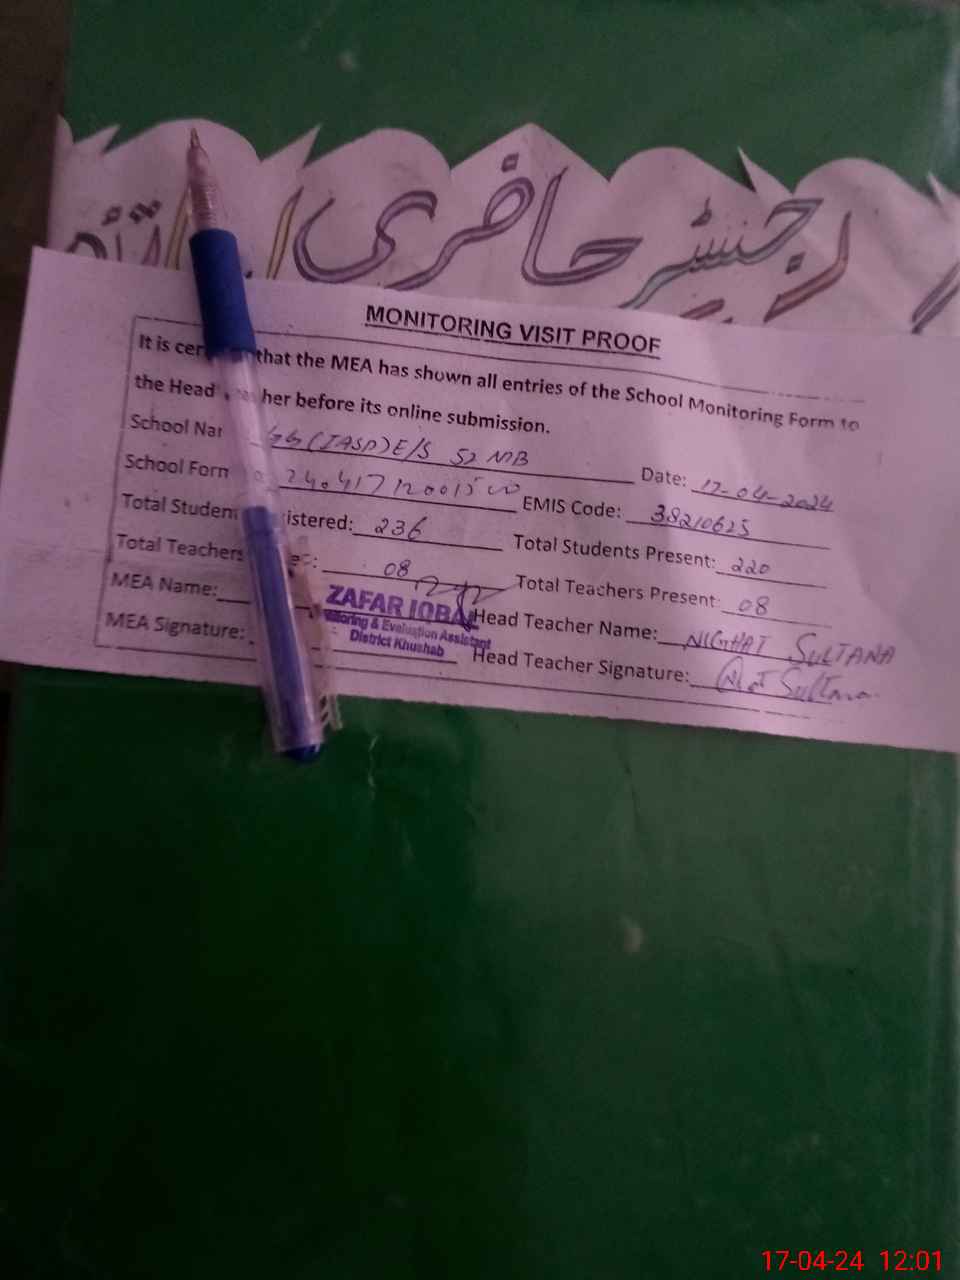 رجسٹر حاضری
MONITORING VISIT PROOF
It is that the MEA has shown all entries of the School Monitoring Form to
the Head her before its online submission.
School Nar (IASP) E/S 52 MB Date: 17-04-2024
School Form EMIS Code: 38210625
Total Studen istered: 236 Total Students Present: 220
Total Teachers 08 Total Teachers Present: 08
MEA Name: ZAFAR IQBAL Head Teacher Name: NIGHAT SULTANA
Monitoring & Evaluation Assistant
District Khushab
MEA Signature: Head Teacher Signature: Sultana
17-04-24 12:01